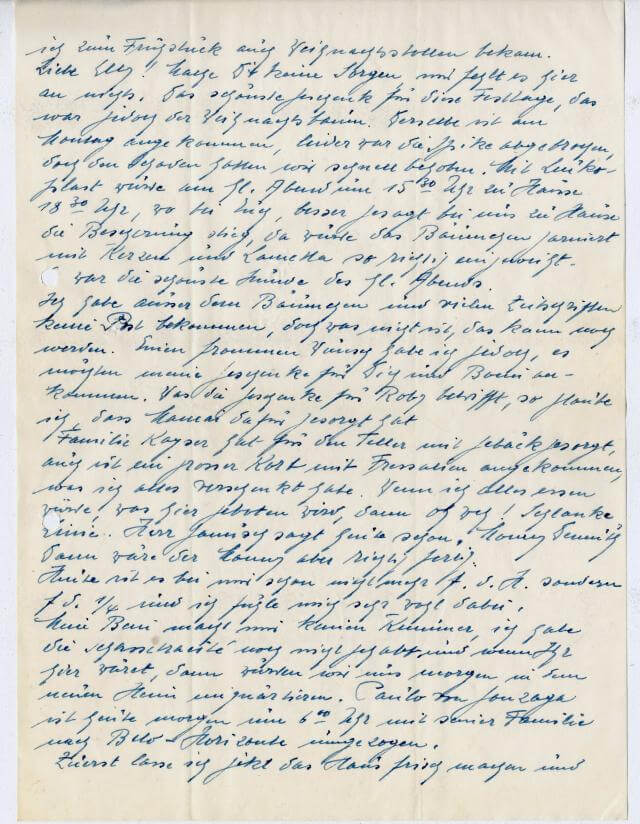 ich zum Frühstück auch Weihnachtsstollen bekam.
Liebe Elly! Mache Dir keine Sorgen, mir fehlt es hier
an nichts. Das schönste Geschenk für diese Festtage, das
war jedoch der Weihnachtsbaum. Derselbe ist am
Montag angekommen, leider war die Spitze abgebrochen,
doch den Schaden hatten wir schnell behoben. Mit Leuko-
plast wurde am hl. Abend um 15 30 Uhr zu Hause
18 30 Uhr, wo bei Euch, besser gesagt bei uns zu Hause
die Bescherung stieg, da wurde das Bäumchen garniert
mit Kerzen und Lametta so richtig eingeweiht.
war die schönste Stunde des hl. Abends.
Ich habe ausser dem Bäumchen und vielen Zeitschriften
keine Post bekommen, doch was nicht ist, das kann noch
werden. Einen frommen Wunsch habe ich jedoch, es
möchten meine Geschenke für Dich und Boni an-
kommen. Was die Geschenke für Roby betrifft, so glaube
ich, dass Mama dafür gesorgt hat
Familie Kayser hat für den Teller mit Gebäck gesorgt,
auch ist ein grosser Korb mit Fressalien angekommen,
was ich alles verschenkt habe. Wenn ich alles essen
würde, was hier geboten wird, dann oh weh! Schlanke
Linie. Herr Janisch sagt heute schon,
dann wäre der Manny aber richtig fertig.
Heute ist es bei mir schon nicht mehr f. d. H. sondern
f. d. 1/4 und ich fühle mich sehr wohl dabei.
Mein Bein macht mir keinen Kummer, ich habe
die noch nicht gehabt, und wenn Ihr
hier wäret, dann würden wir uns morgen in dem
neuen Heim einquartieren. Paulo von Gonzaga
ist heute morgen um 6 00 Uhr mit seiner Familie
nach Belo-Horizonte umgezogen.
Zuerst lasse ich jetzt das Haus frisch machen und